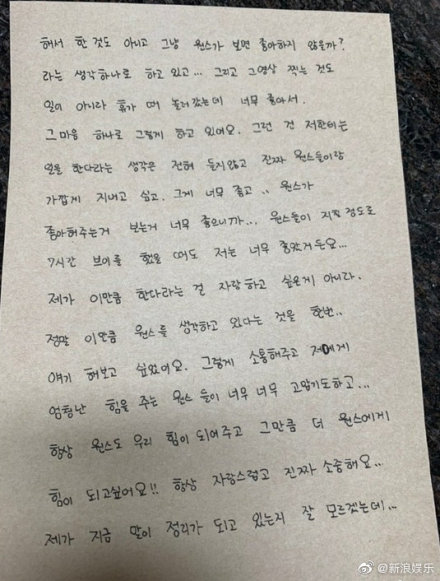 해서 한 것도 아니고 그냥 원스가 보면 좋아하지 않을까?
라는 생각하나로 하고 있고... 그리고 그영상 찍는 것도
일이 아니라 휴가 때 놀러갔는데 너무 좋아서.
그마음 하나로 그렇게 하고 있어요. 그런 건 저한테는
일을 한다라는 생각은 전혀 들지않고 진짜 원스들이랑
가깝게 지내고 싶고. 그게 너무 좋고 .. 원스가
좋아해주는거 보는게 너무 좋으니까... 원스들이 지칠 정도로
7시간 브이를 했을 때도 저는 너무 좋았거든요...
제가 이만큼 한다라는 걸 자랑하고 싶은게 아니라.
정말 이만큼 원스를 생각하고 있다는 것을 한번..
얘기 해보고 싶었어요. 그렇게 소통해주고 저에게
엄청난 힘을 주는 원스 들이 너무 너무 고맙기도하고...
항상 원스도 우리 힘이 되어주고 그만큼 더 원스에게
힘이 되고싶어요!! 항상 자랑스럽고 진짜 소중해요...
제가 지금 말이 정리가 되고 있는지 잘 모르겠는데...
@新浪娱乐